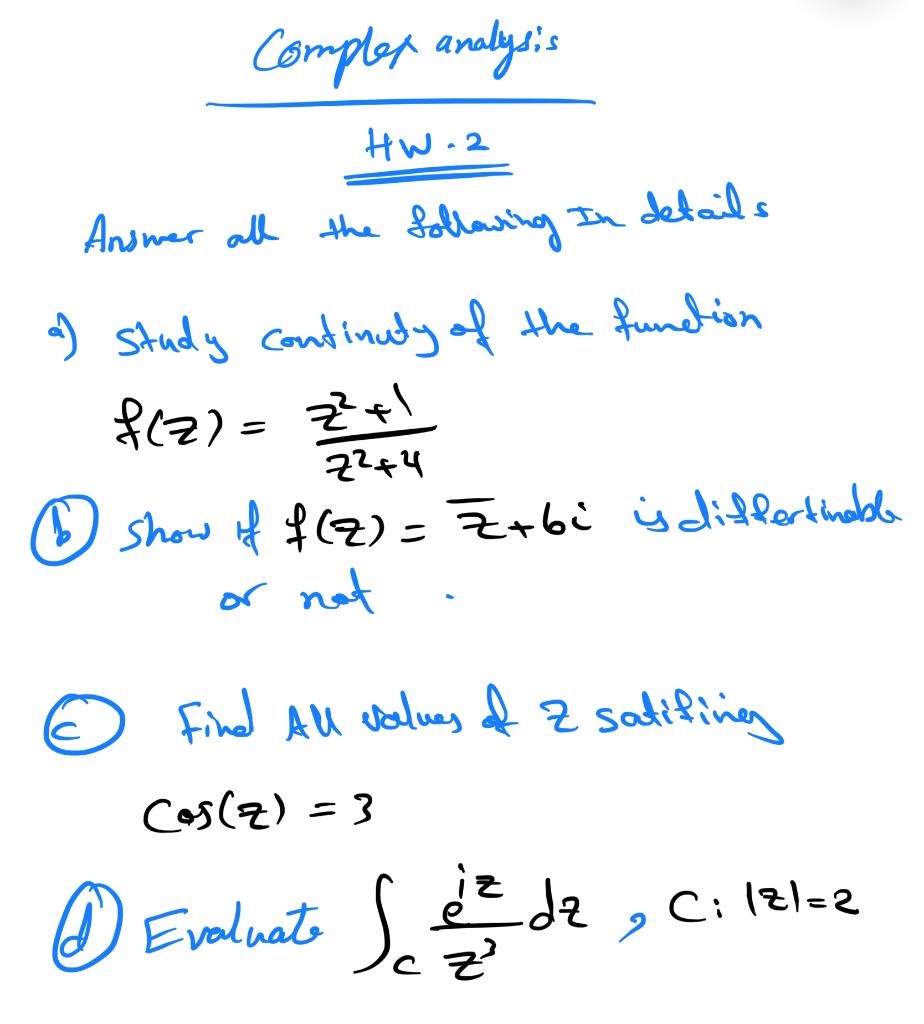 Complex analysis
HW.2
Answer all the following In details
a) study continuty of the function
f(z) = z²+1 / z²+4
(b) show if f(z) = z̅+6i is differtinable
or not .
(c) Find All values of z satifiney
Cos(z) = 3
(d) Evaluate ∫_C e^{iz}/z³ dz , C: |z|=2